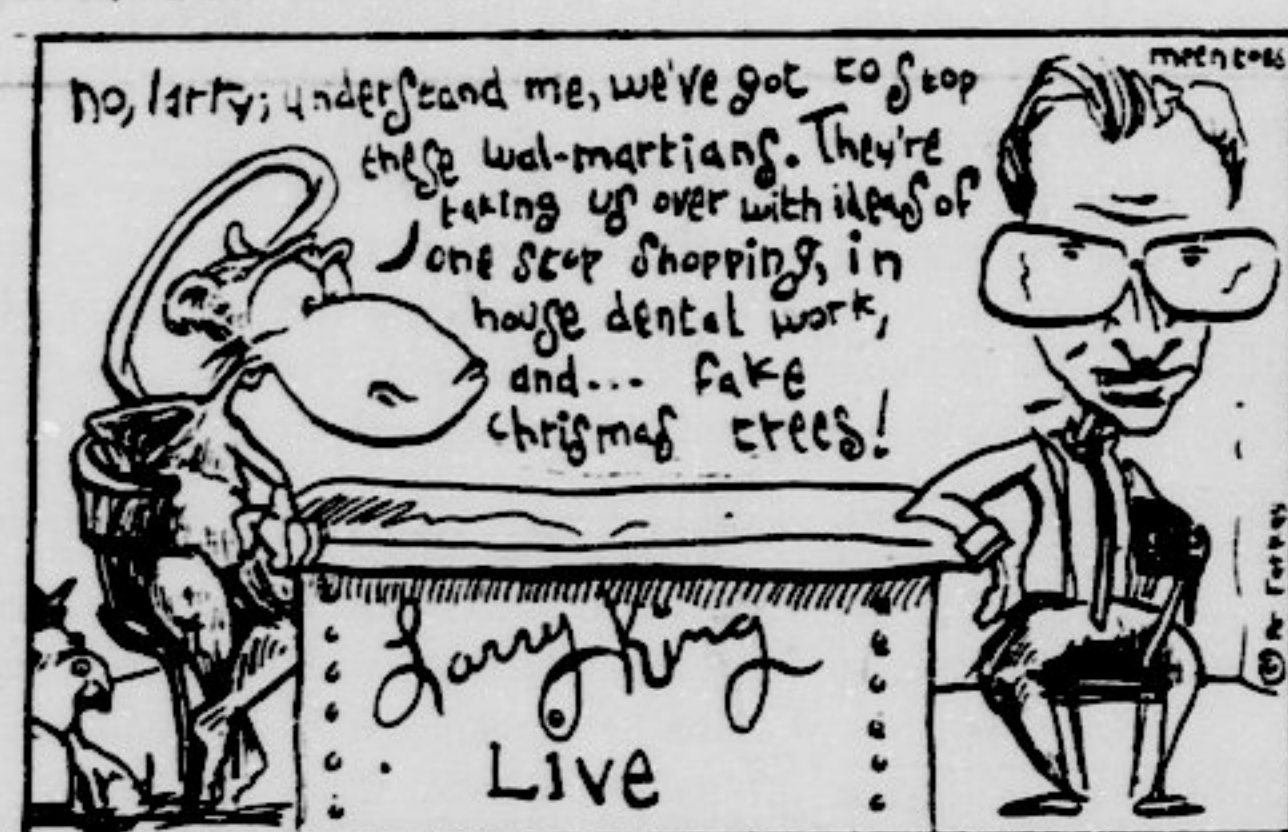 no, larry; understand me, we've got to stop
these wal-martians. They're
taking us over with ideas of
one stop shopping, in
house dental work,
and... fake
chrismas trees!
Larry King
Live